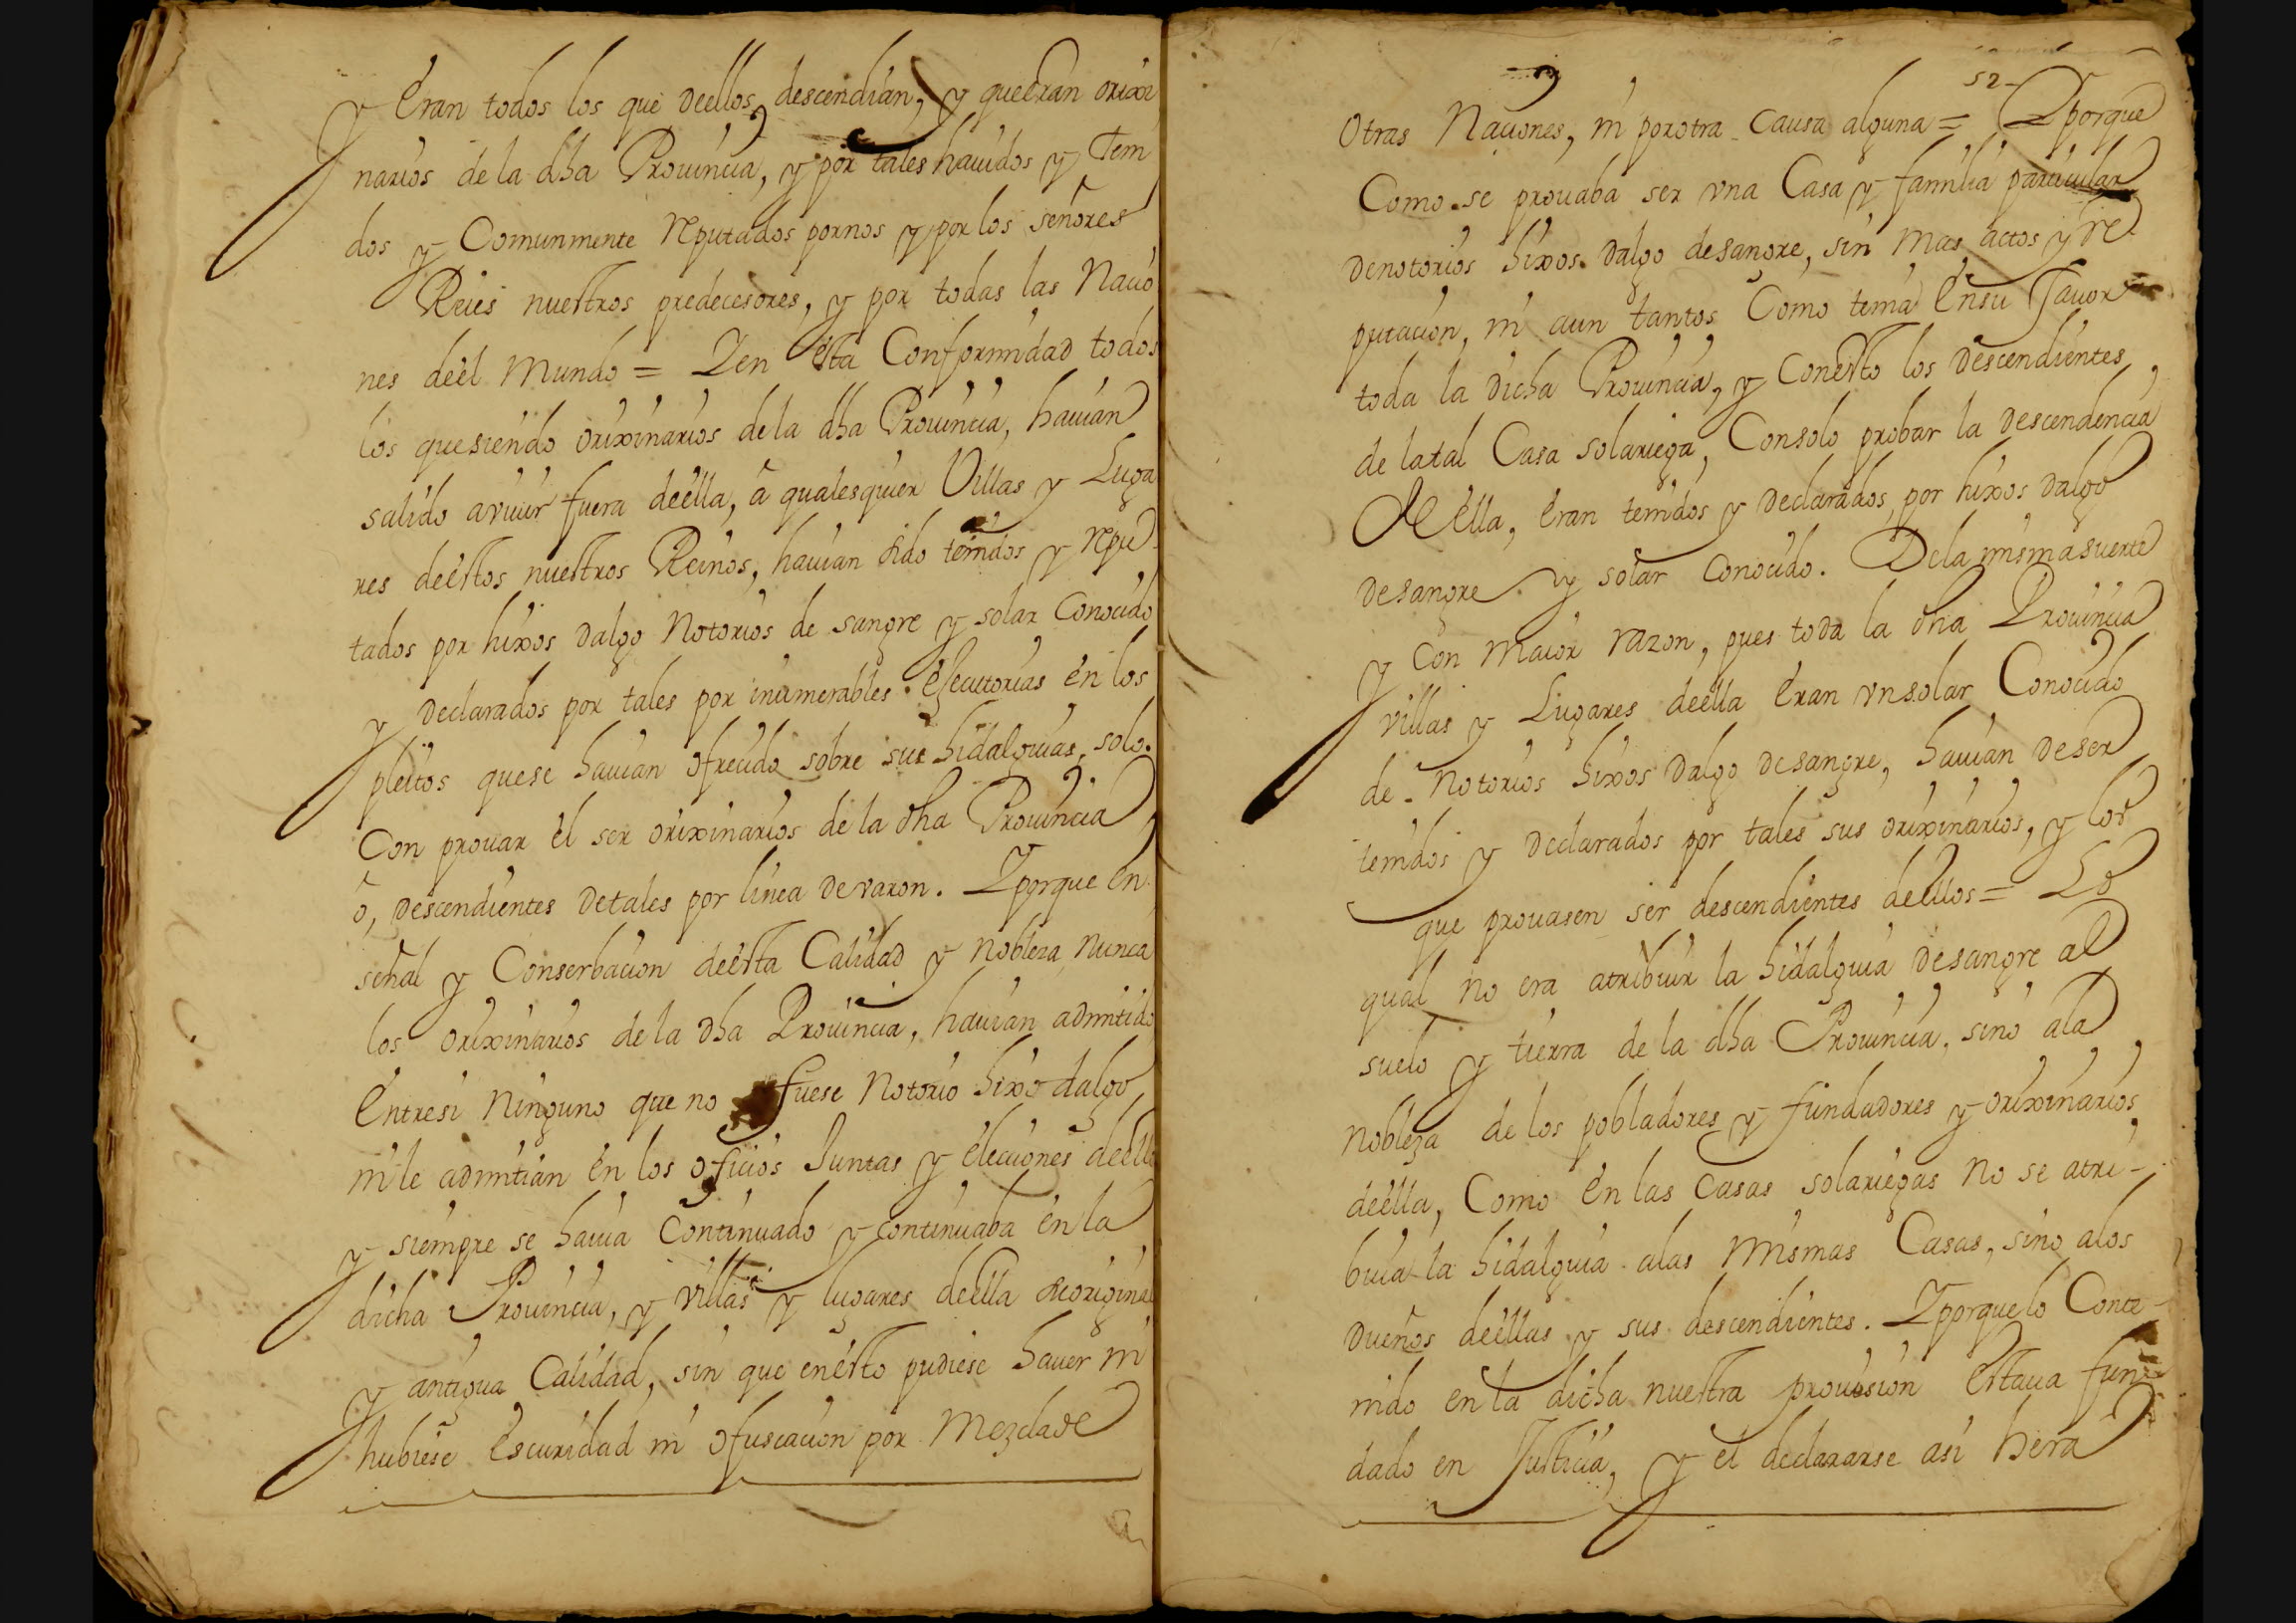 y Eran todos los que deellos descendian, y queEran orixi
narios de la dha Prouincia, y por tales hauidos y Teni
dos y Comunmente Reputados pornos y por los señores
Reies nuestros predecesores, y por todas las Nacio
nes deel Mundo = Y en ésta Conformidad todos
los quesiendo orixinarios dela dha Prouincia, hauian
salido aviuir fuera deélla, â qualesquier Villas y Luga
res deéstos nuestros Reinos, hauian sido tenidos y Repu
tados por hixos dalgo Notorios de sangre y solar Conocido
y Declarados por tales por inumerables Esecutorias én los
pleitos quese hauian ofrecido sobre sus hidalguias, solo.
Con prouar el ser orixinarios de la dha Prouincia
ô, Descendientes Detales por linea devaron. Yporque én
señal y Conserbacion deésta Calidad y Nobleza, Nunca
los orixinarios de la dha Prouincia, hauian admitido
Entresi Ninguno que no fuese Notorio hixo dalgo
ni le admitian én los oficios Juntas y élecciones deélla
y siempre se hauia Continuado y continuaba én la
dicha Prouincia, y villas y lugares deélla deoriginal
y antigua Calidad, sin que enésto pudiese hauer ni
hubiese Escuridad ni ofuscacion por Mezclade
52-
Otras Naciones, ni porotra Causa alguna = Yporque
Como se prouaba ser vna Casa y familia particular
denotorios hixos dalgo desangre, sin Mas actos y re
putacion, ni aun tantos Como tenia Ensu favor
toda la Dicha Prouincia, y Conésto los Descendientes
de latal Casa solariega, Consolo probar la Descendencia
de Ella, Eran tenidos y Declarados, por hixos Dalgo
desangre y solar Conocido. Dela mismasuerte
y Con Maior razon, pues toda la dha Prouincia
villas y Lugares deélla Eran vnsolar Conocido
de Notorios hixos Dalgo desangre, hauian Deser
tenidos y Declarados por tales sus orixinarios, y los
que prouasen ser descendientes deéllos = Lo
qual no era atribuir la hidalguia Desangre al
suelo y tierra de la dha Prouincia, sino ala
Nobleza de los pobladores y fundadores y orixinarios
deélla, Como én las Casas solariegas No se atri-
buia la hidalguia alas Mismas Casas, sino alos
Dueños deéllas y sus descendientes. Yporquelo Conte-
nido en la dicha nuestra prouision Estaua fun
dado en Justicia, y el declararse asi hera